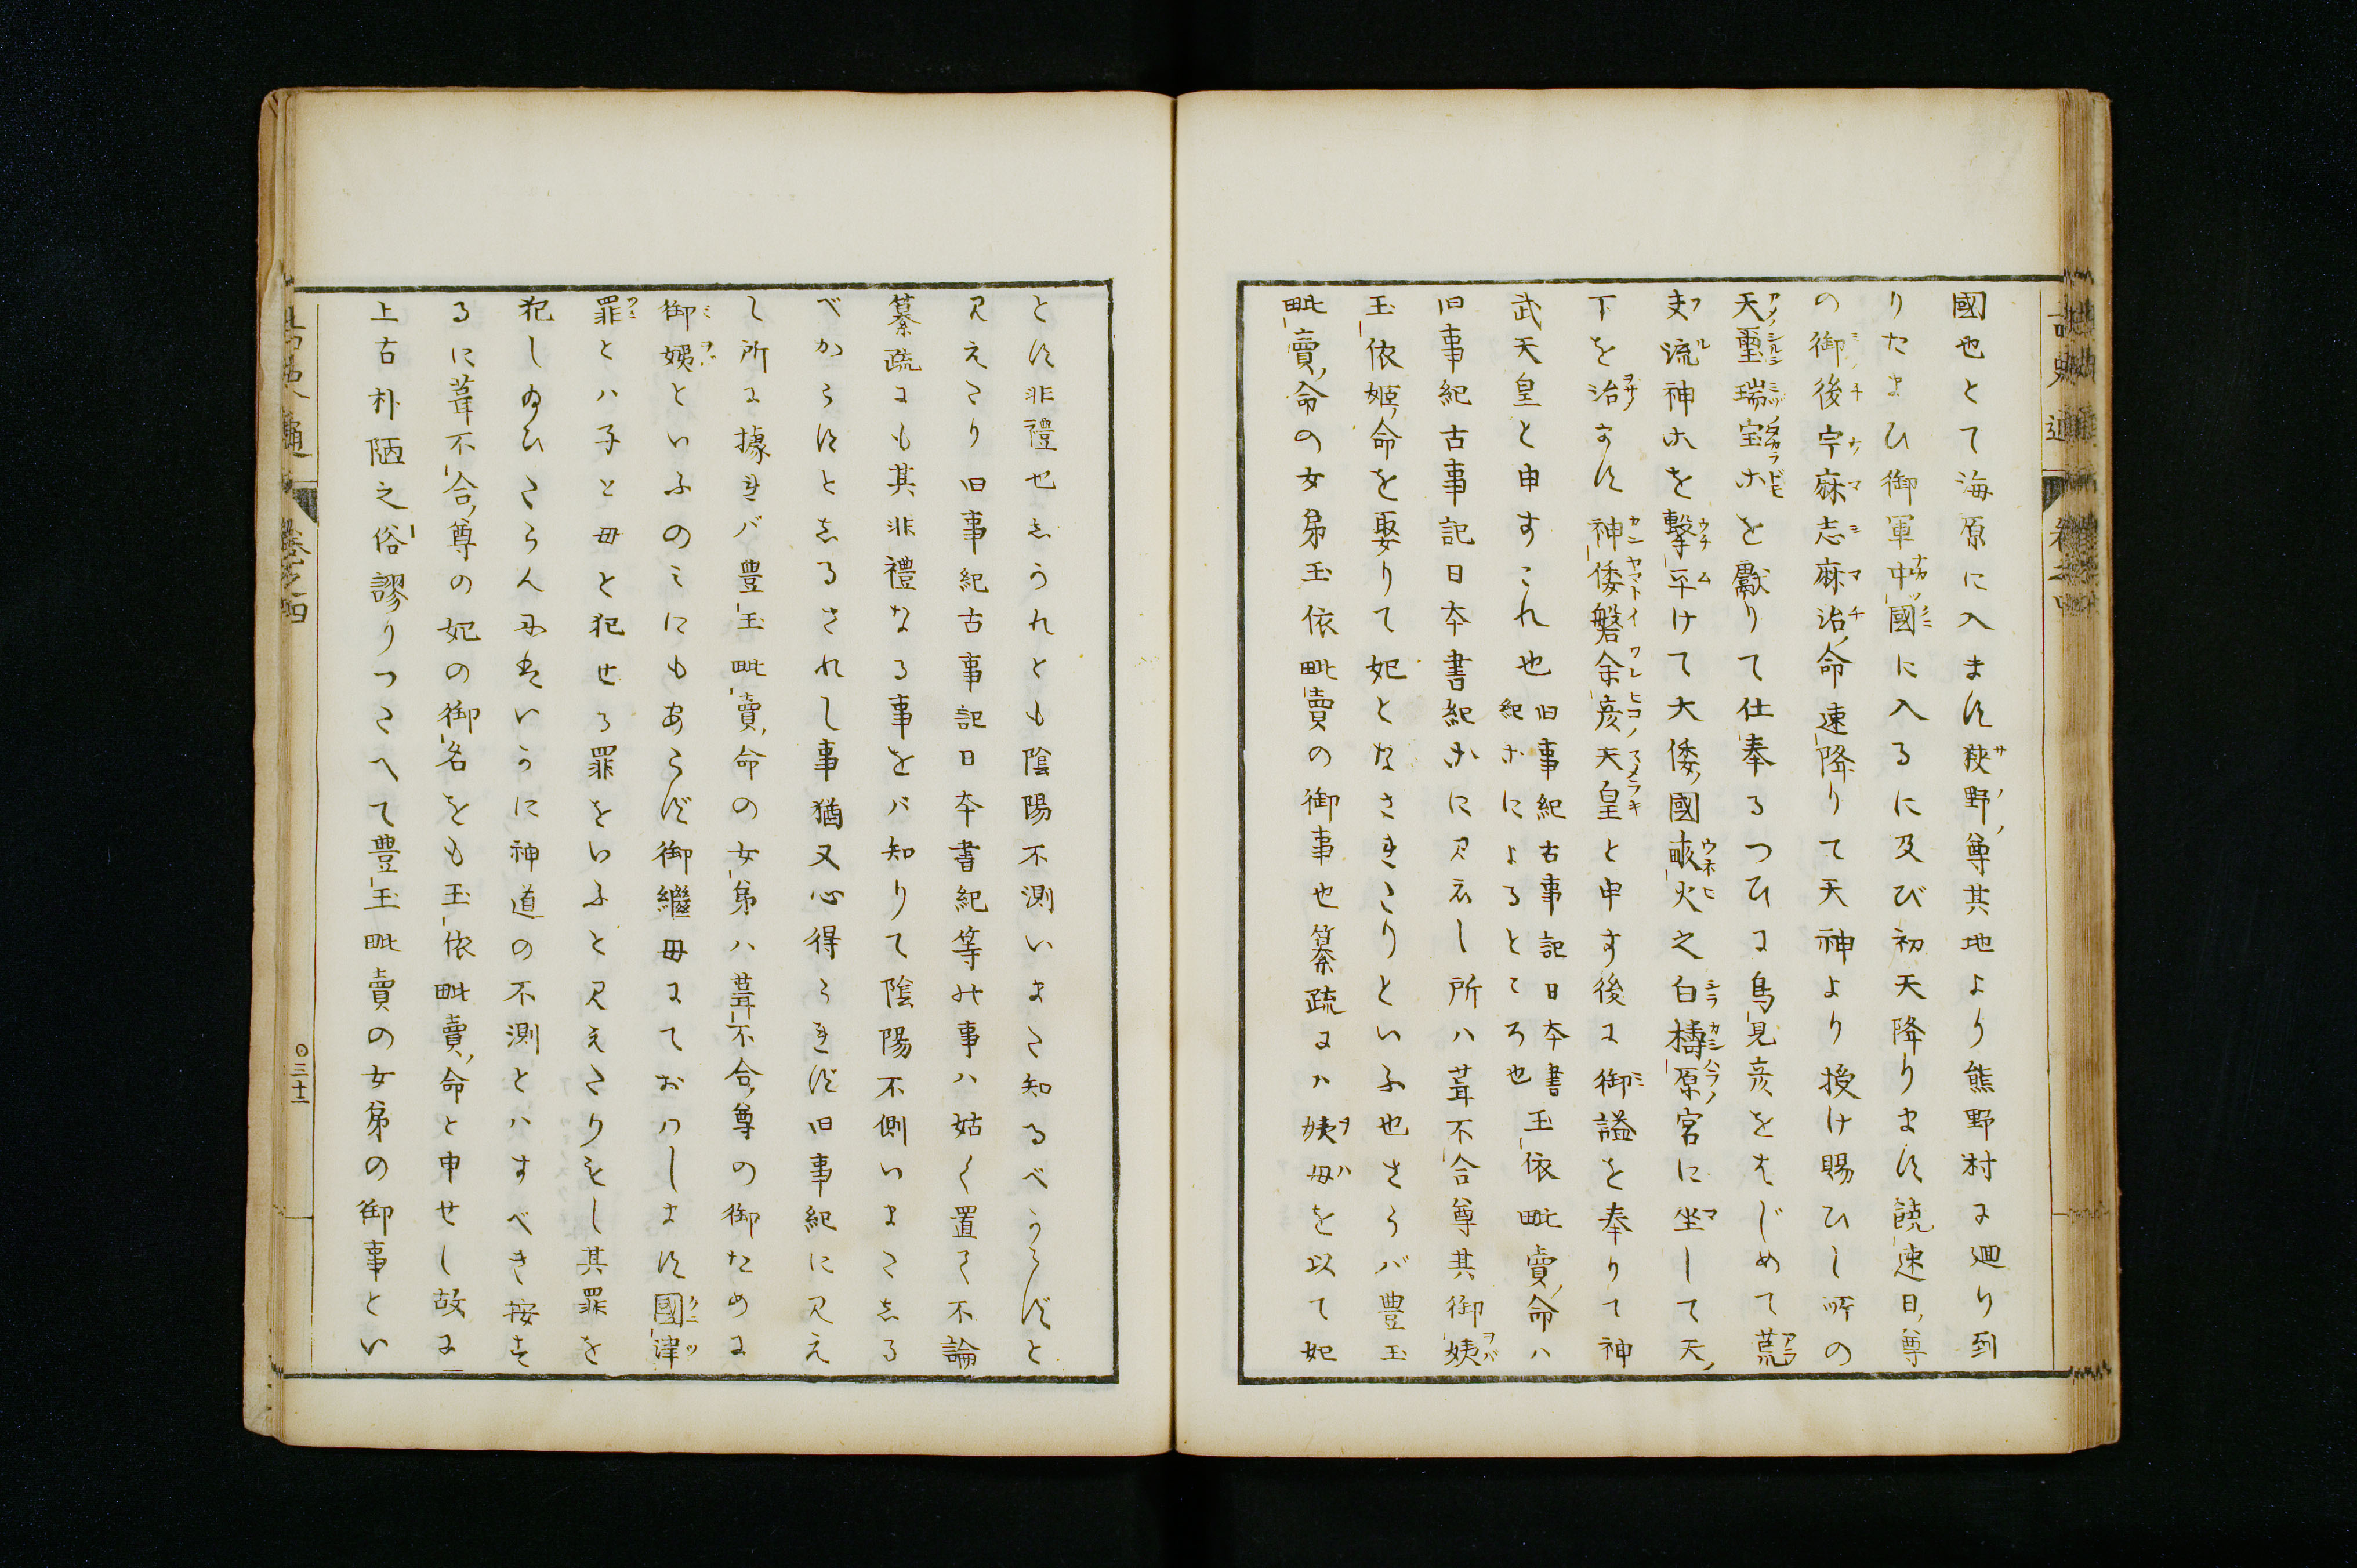 國也とて海原に入ます狹野尊其地より熊野村に廻り到
りたまひ御軍中國に入るに及び初天降ります饒速日尊
の御後宇麻志麻治命速降りて天神より授け賜ひし所の
天璽瑞宝ホを獻りて仕奉るつひに鳥見彦をはじめて荒
夫流神ホを擊平けて大倭國畝火之白檮原宮に坐して天
下を治すす神倭磐余彦天皇と申す後に御謚を奉りて神
武天皇と申すこれ也旧事紀古事記日本書紀ホによるところ也玉依毗賣命ハ
旧事紀古事記日本書紀ホに見えし所ハ葺不合尊其御姨
玉依姬命を娶りて妃となさきたりといふ也さらバ豊玉
毗賣命の女弟玉依毗賣の御事也纂疏にハ姨母を以て妃
とす非禮也しかれとも陰陽不測いまた知るべからずと
見えたり旧事紀古事記日本書紀等の事ハ姑く置く不論
纂疏にも其非禮なる事をバ知りて陰陽不側いまたしる
べからすとしるされし事猶又心得らきず旧事紀に見え
し所に據きバ豊玉毗賣命の女弟ハ葺不合尊の御ために
御姨といふのみにもあらず御繼母にておハします國津
罪とハ子と母と犯せる罪をいふと見えたりもし其罪を
犯し給ひたらん ハいかに神道の不測とハすべき按ず
るに葺不合尊の妃の御名をも玉依毗賣命と申せし故に
上古朴陋之俗謬りつたへて豊玉毗賣の女弟の御事とい
古史通
卷之四
〇三十二